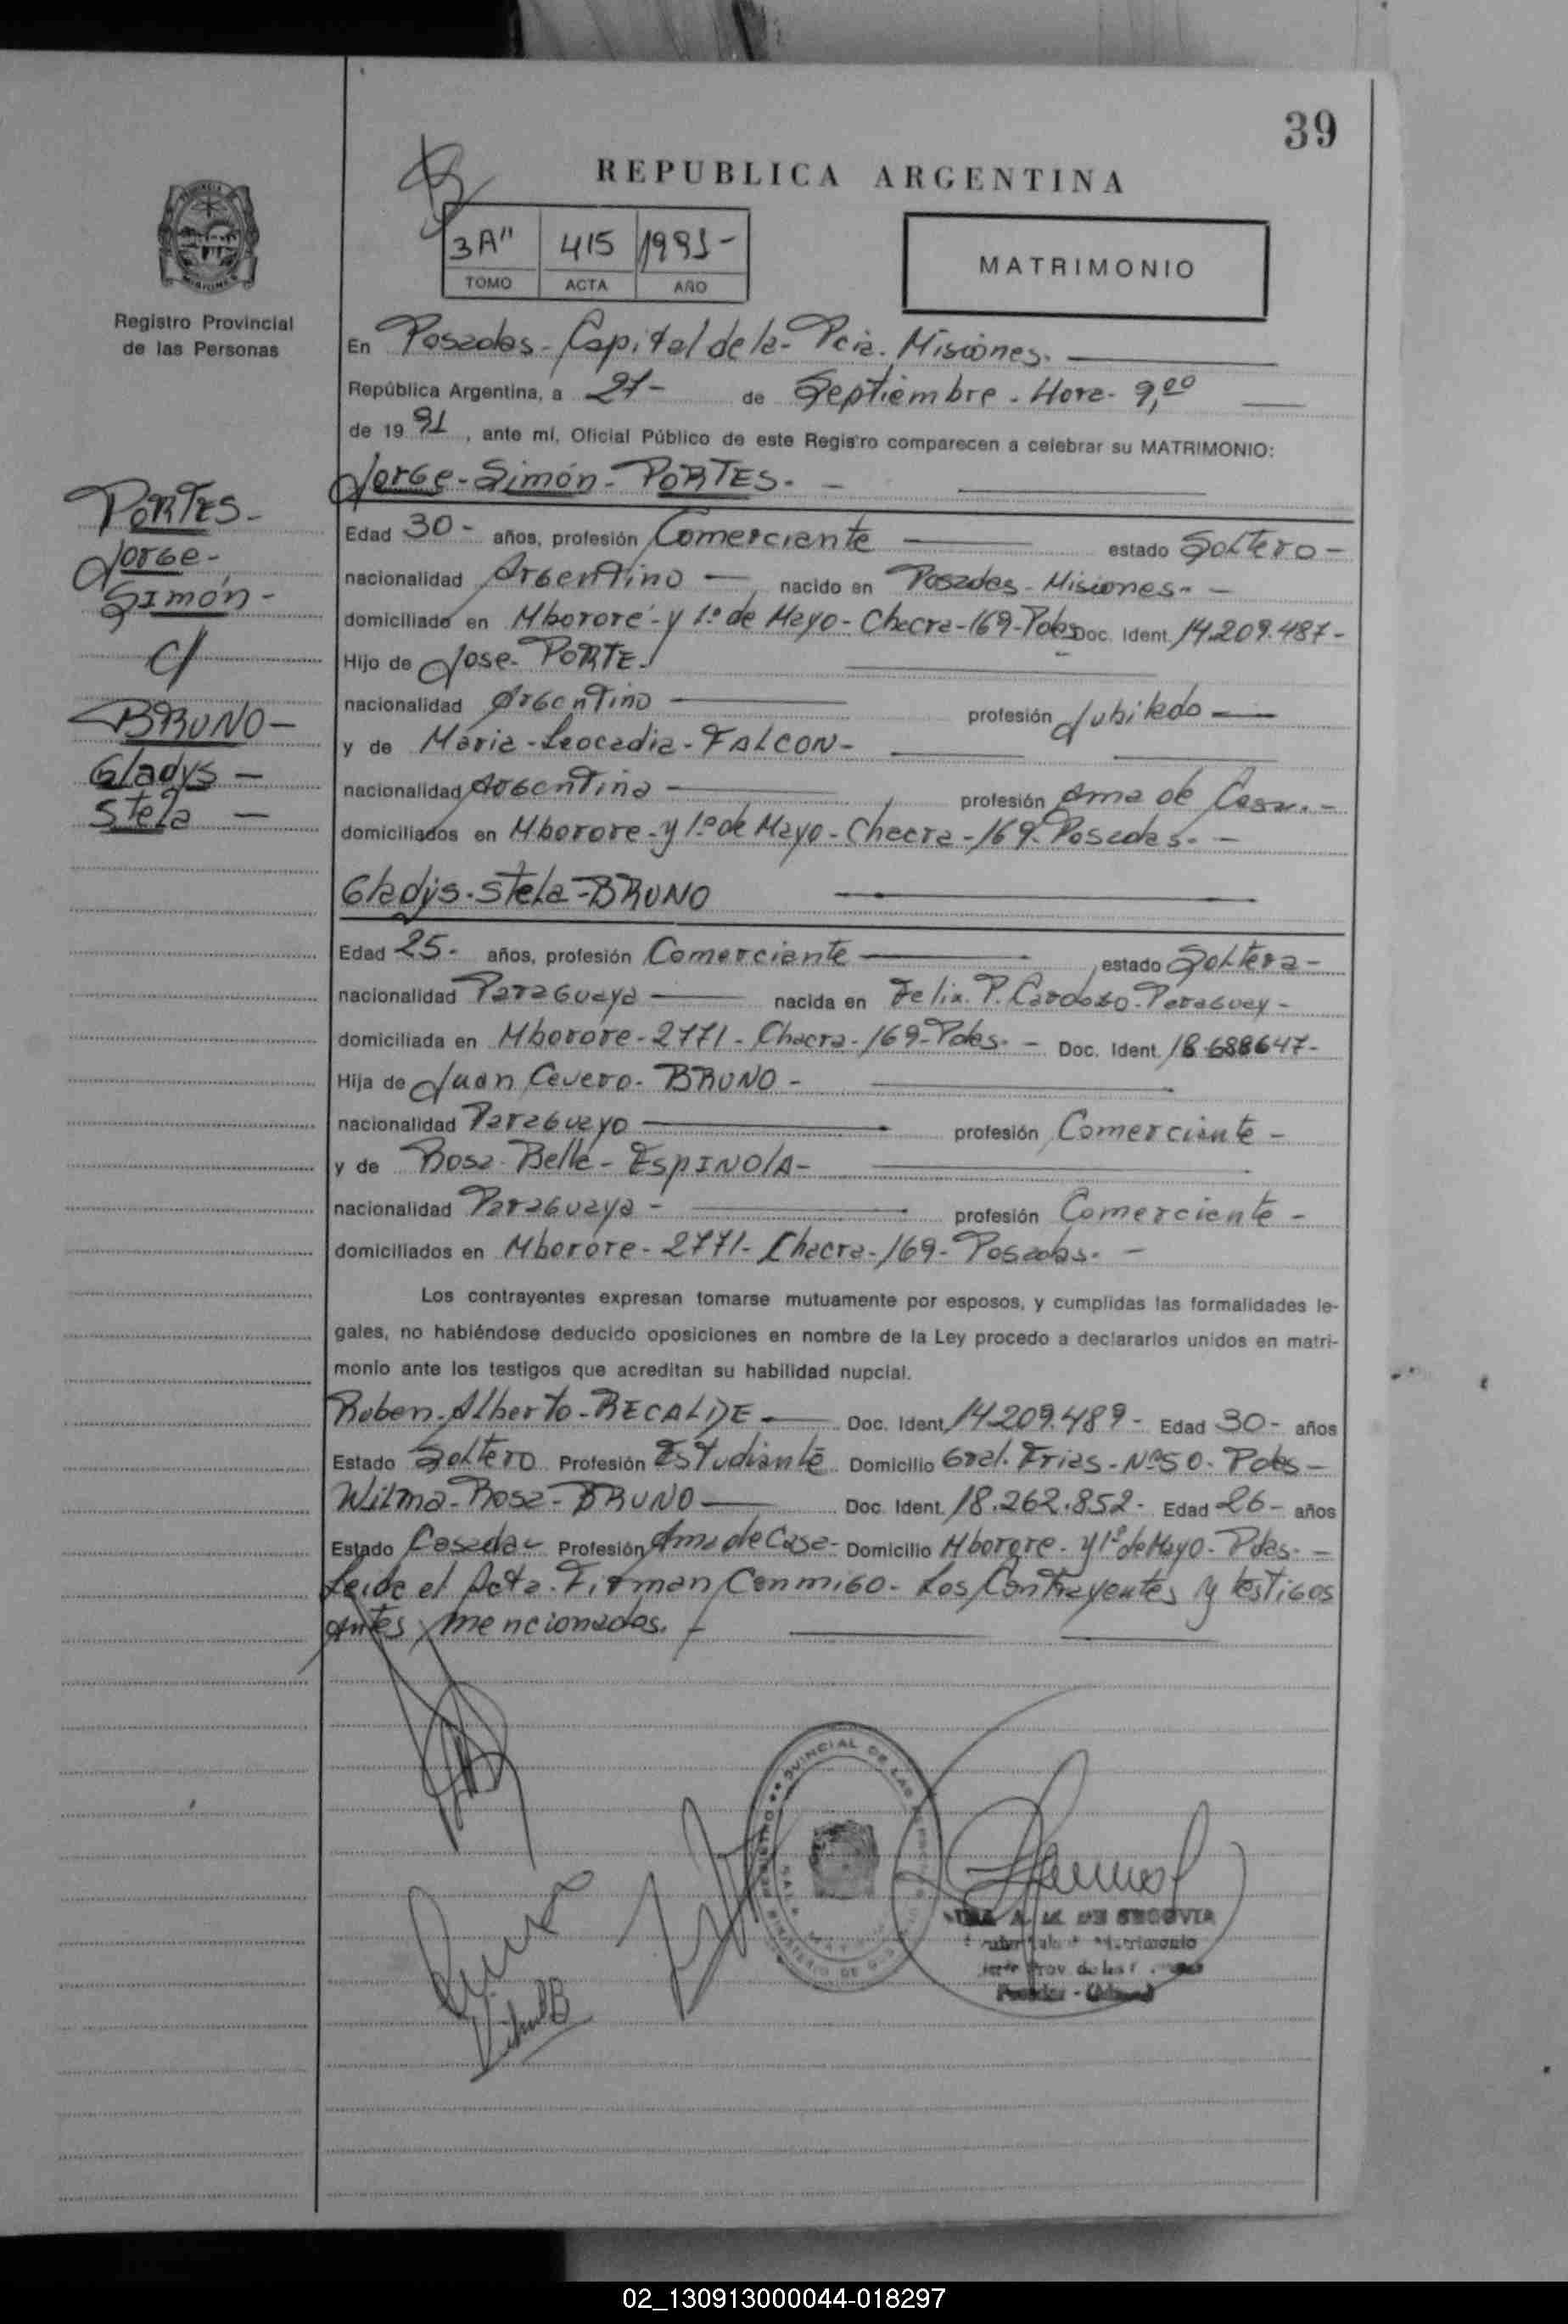 39
REPUBLICA ARGENTINA
3A" 415 1991-
TOMO ACTA AÑO
MATRIMONIO
Registro Provincial
de las Personas
En Posadas - Capital de la - Pcia. Misiones.
República Argentina, a 27- de Septiembre - Hora - 9,00
de 19 91, ante mí, Oficial Público de este Registro comparecen a celebrar su MATRIMONIO:
Jorge - Simón - PORTES. -
PORTES -
Jorge -
Simón -
c/
BRUNO -
Gladys -
Stela -
Edad 30 - años, profesión Comerciante estado Soltero -
nacionalidad Argentino - nacido en Posadas - Misiones - -
domiciliado en Mbororé - y 1º de Mayo - Chacra - 169 - Pdas Doc. Ident. 14.209.487 -
Hijo de Jose - PORTE.
nacionalidad Argentino profesión Jubilado
y de Maria - Leocadia - FALCON -
nacionalidad Argentina profesión Ama de Casa. -
domiciliados en Mborore - y 1º de Mayo - Chacra - 169 - Posadas. -
Gladys - Stela - BRUNO
Edad 25 - años, profesión Comerciante estado Soltera -
nacionalidad Paraguaya nacida en Felix. P. Cardozo - Paraguay -
domiciliada en Mborore - 2771 - Chacra - 169 - Pdas. - Doc. Ident. 18.688647 -
Hija de Juan Cevero - BRUNO -
nacionalidad Paraguayo profesión Comerciante -
y de Rosa - Bella - ESPINOLA -
nacionalidad Paraguaya - profesión Comerciante -
domiciliados en Mborore - 2771 - Chacra - 169 - Posadas. -
Los contrayentes expresan tomarse mutuamente por esposos, y cumplidas las formalidades le-
gales, no habiéndose deducido oposiciones en nombre de la Ley procedo a declararlos unidos en matri-
monio ante los testigos que acreditan su habilidad nupcial.
Ruben - Alberto - RECALDE Doc. Ident. 14.209.489 - Edad 30 - años
Estado Soltero Profesión Estudiante Domicilio Gral. Frias - Nº 50 - Pdas -
Wilma - Rosa - BRUNO Doc. Ident. 18.262.852 - Edad 26 - años
Estado Casada - Profesión Ama de Casa - Domicilio Mborore - y 1º de Mayo - Pdas. -
Leida el Acta - Firman Conmigo - Los Contrayentes y testigos
antes mencionados. -
A. M. DE SEGOVIA
02_130913000044-018297